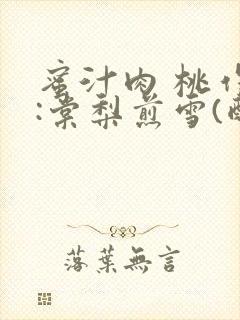 蜜汁肉桃作
:棠梨煎雪(
落葉無言